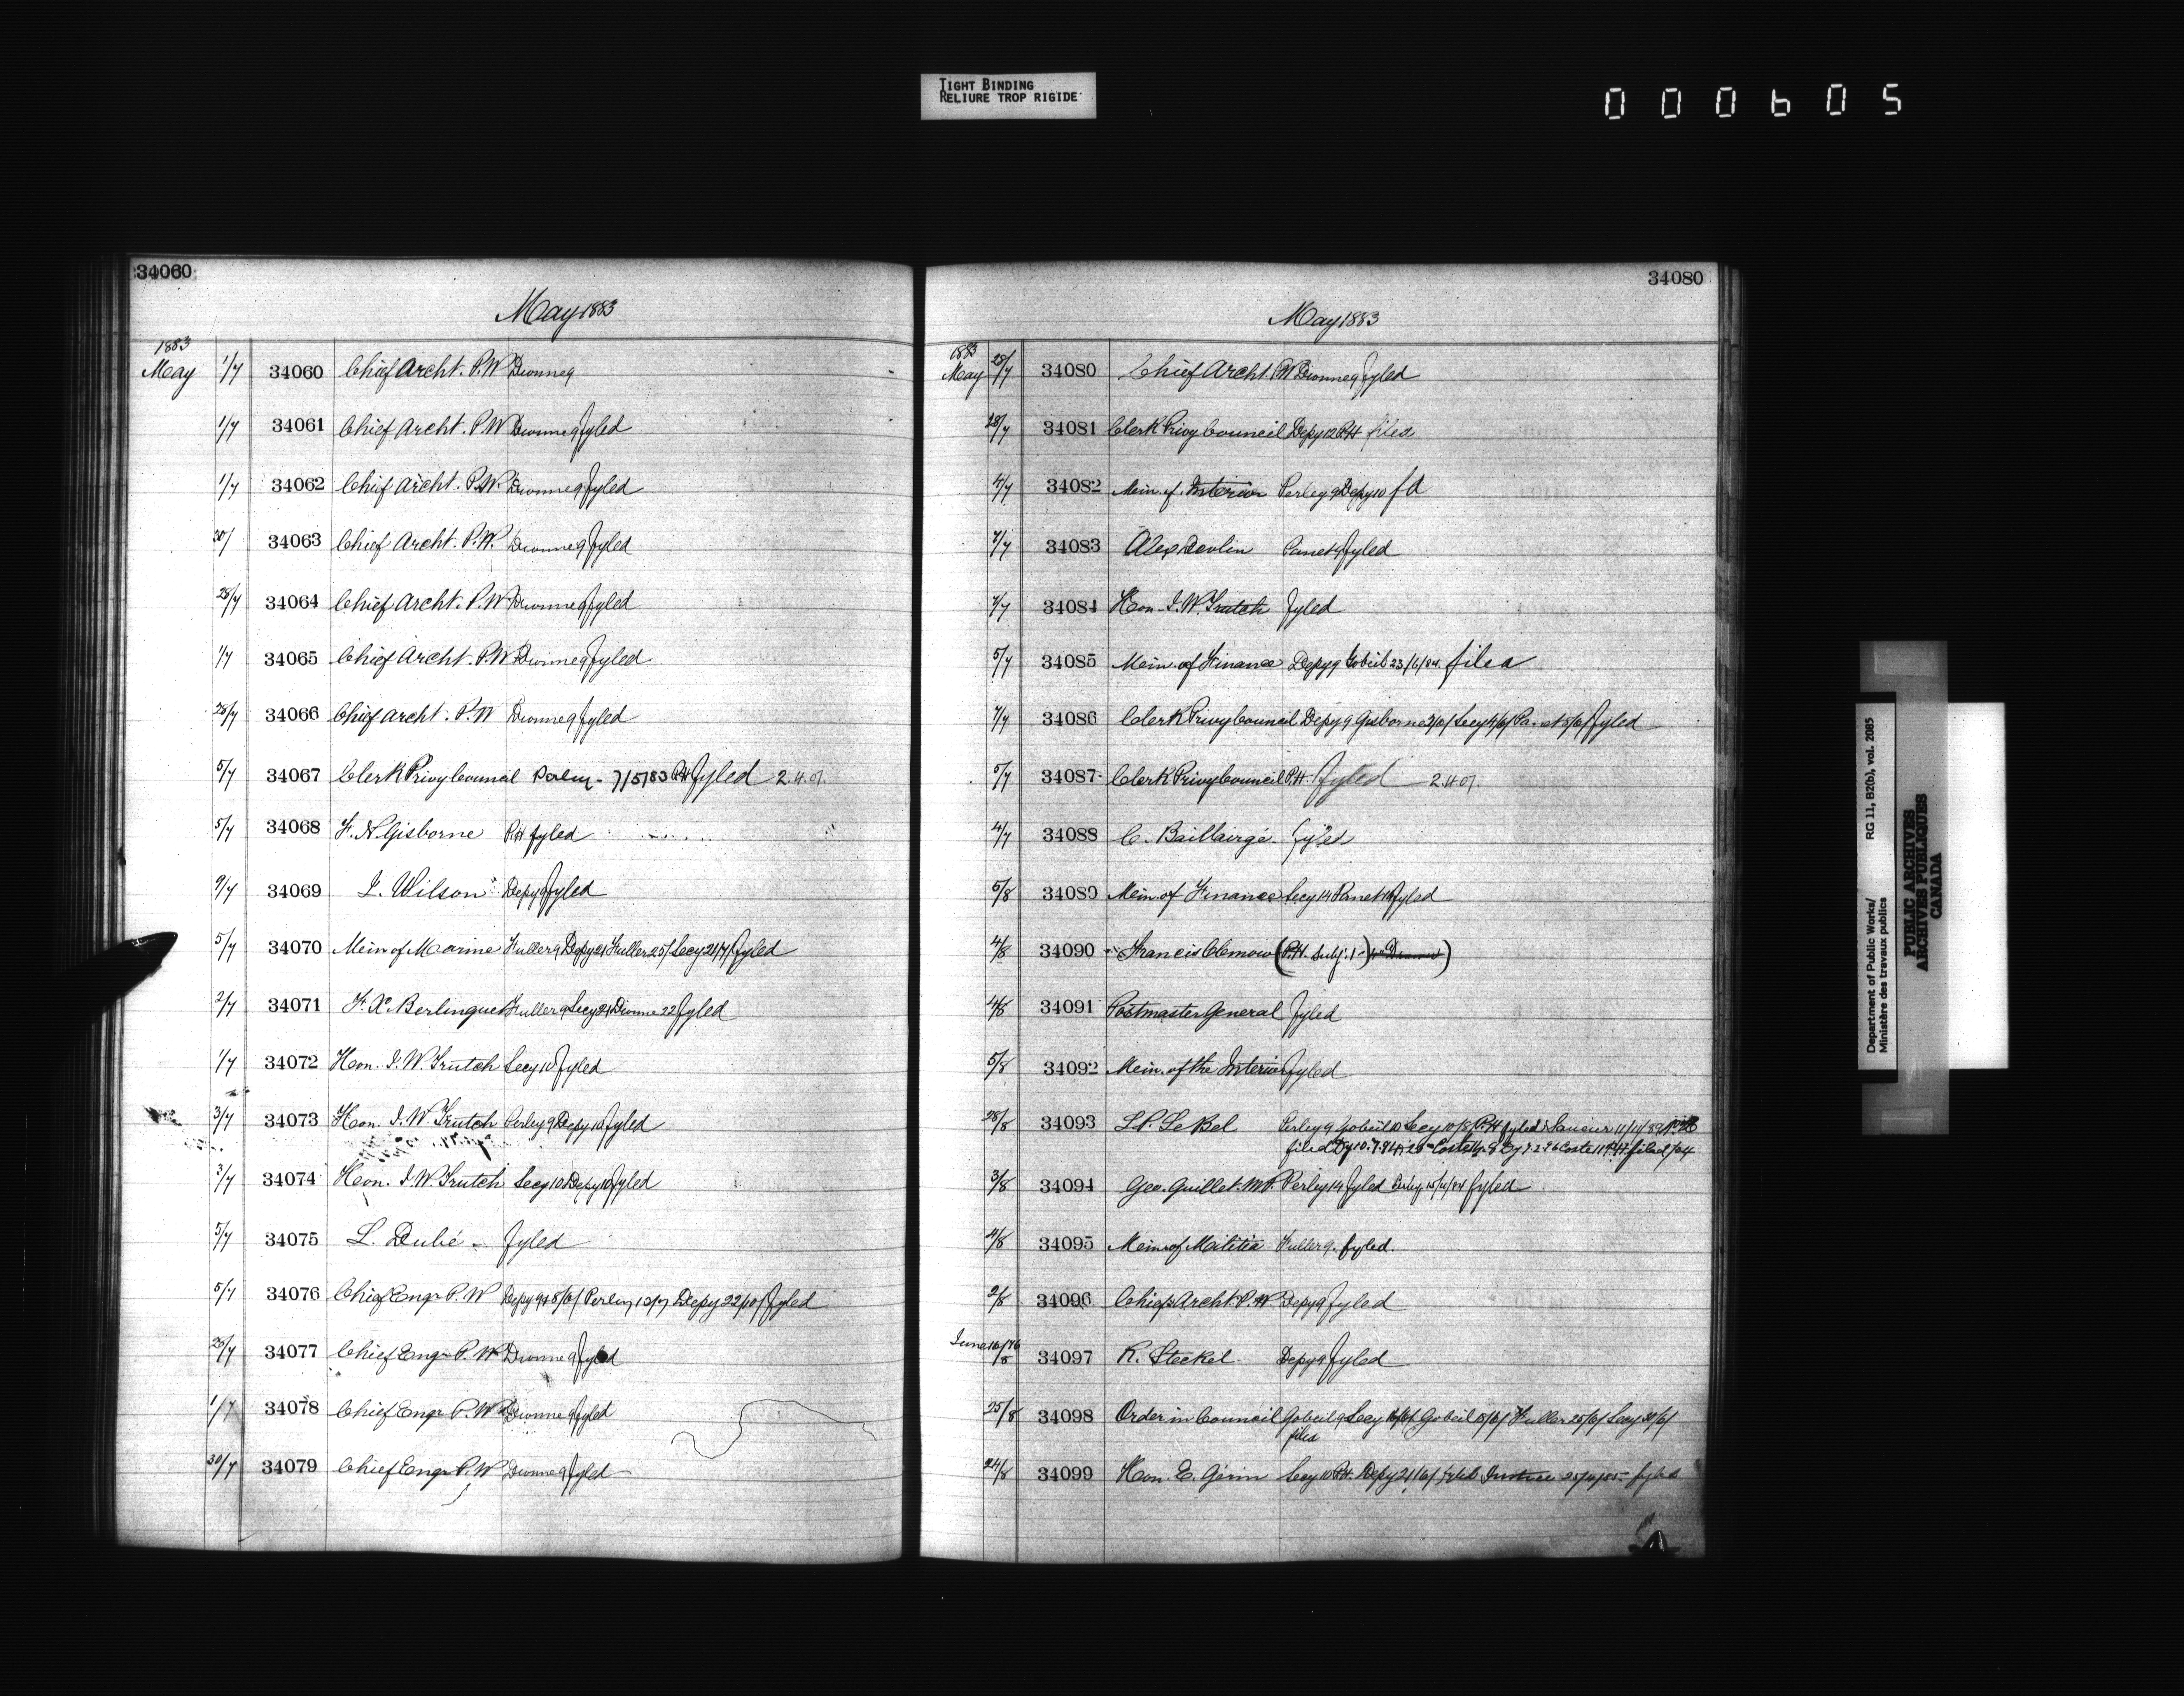 TIGHT BINDING
RELIURE TROP RIGIDE
000605
34060
May 1883
1883
May 1/7 34060 Chief Archt. P.W Dionne 9
1/7 34061 Chief Archt. P.W Dionne 9 fyled
1/7 34062 Chief Archt. P.W. Dionne 9 fyled
30/ 34063 Chief Archt. P.W. Dionne 9 fyled
28/7 34064 Chief Archt. P.W Dionne 9 fyled
1/7 34065 Chief Archt. P.W Dionne 9 fyled
28/7 34066 Chief Archt. P.W Dionne 9 fyled
5/7 34067 Clerk Privy Council Perley - 7/5/83 P.H fyled 2.4.01.
5/7 34068 F. N Gisborne P.H fyled
9/7 34069 J. Wilson Depy 9 fyled
5/7 34070 Mein of Marine Fuller 9 Depy 21 Fuller 25/ Secy 28/7/ fyled
2/7 34071 F. X. Berlinguet Fuller 9 Secy 21 Dionne 22 fyled
1/7 34072 Hon. J. W. Trutch Secy 10 fyled
3/7 34073 Hon. J. W. Trutch Perley 9 Depy 10 fyled
3/7 34074 Hon. J. W. Trutch Secy 10 Depy 10 fyled
5/7 34075 L. Dubé - fyled
5/7 34076 Chief Engr P. W Depy 9 Perley 12/7 Depy 22/10/ fyled
25/7 34077 Chief Engr P. W Dionne 9 fyled
1/7 34078 Chief Engr P. W Dionne 9 fyled
30/7 34079 Chief Engr P. W Dionne 9 fyled
34080
May 1883
1883
May 28/7 34080 Chief Archt. P.W Dionne 9 fyled
28/7 34081 Clerk Privy Council Depy 12 P.H filed
4/7 34082 Mein. of. Interior Perley 9 Depy 10 fd
7/7 34083 Alex Devlin Panet 9 fyled
7/7 34084 Hon. J. W. Trutch fyled
5/7 34085 Mein. of Finance Depy 9 Gobeil 23/6/84. filed
7/7 34086 Clerk Privy Council Depy 9 Gisborne 2/6/ Secy 4/6/ Panet 5/6/ fyled
5/7 34087 Clerk Privy Council P.H. fyled 2.4.01.
4/7 34088 C. Baillairgé - fyled
5/8 34089 Mein. of Finance Secy 14 Panet fyled
4/8 34090 Francis Clemow (P.H. Subj. 1 - )
4/8 34091 Postmaster General fyled
5/8 34092 Mein. of the Interior fyled
28/8 34093 L.P. LeBel Perley 9 Gobeil 10 Secy 10/8/ P.H fyled
filed
3/8 34094 Geo. Guillet. M.P. Perley 14 fyled fyled
4/8 34095 Mein. of Militia Fuller 9. fyled.
2/8 34096 Chief Archt. P. W Depy 9 fyled
June 34097 R. Steckel - Depy 9 fyled
25/8 34098 Order in Council Gobeil 9 Secy Gobeil 15/6/ Fuller 25/6/ Secy 30/6/
filed
24/8 34099 Hon. E. Gérin Secy 10 P.H. Depy 21/6/ fyled Justice fyled
Department of Public Works/
Ministère des travaux publics
RG 11, B2(b), vol. 2085
PUBLIC ARCHIVES
ARCHIVES PUBLIQUES
CANADA